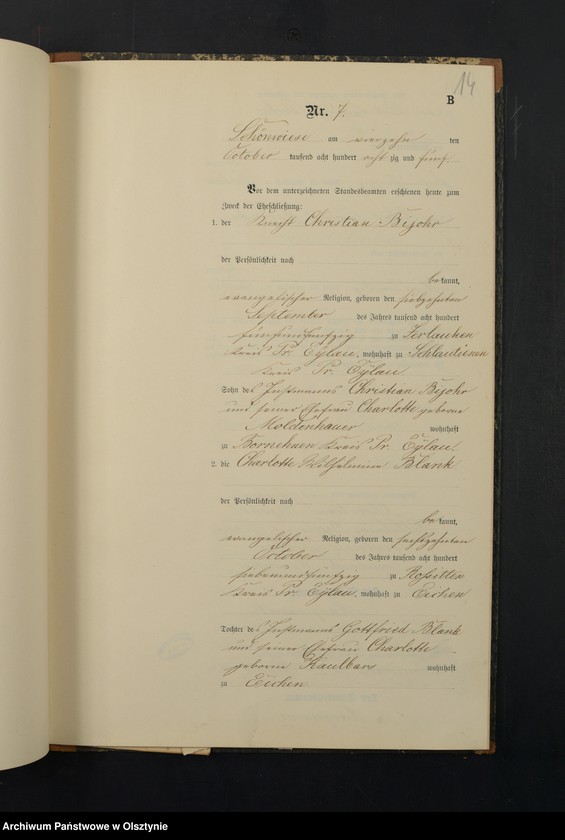 14.
B
Nr. 7.
Schönwiese am vierzehn ten
October tausend acht hundert acht zig und fünf
Vor dem unterzeichneten Standesbeamten erschienen heute zum
Zweck der Eheschließung:
1. der Knecht Christian Bijohr
der Persönlichkeit nach
be kannt,
evangelischer Religion, geboren den siebzehnten
September des Jahres tausend acht hundert
fünfundfünfzig zu Zerlauken
Kreis Pr. Eylau, wohnhaft zu Schlautienen
Kreis Pr. Eylau
Sohn des Instmanns Christian Bijohr
und seiner Ehefrau Charlotte geborne
Moldenhauer wohnhaft
zu Bornehnen Kreis Pr. Eylau.
2. die Charlotte Wilhelmine Blank
der Persönlichkeit nach
be kannt,
evangelischer Religion, geboren den sechszehnten
October des Jahres tausend acht hundert
siebenundfünfzig zu Rositten
Kreis Pr. Eylau, wohnhaft zu Eichen
Tochter des Instmanns Gottfried Blank
und seiner Ehefrau Charlotte
geborne Kaulbars wohnhaft
zu Eichen
Archiwum Państwowe w Olsztynie